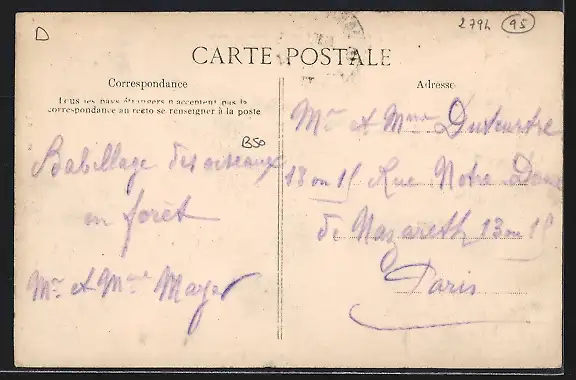 D
279h
95
CARTE POSTALE
Correspondance
Tous les pays étrangers n'acceptent pas la
correspondance au recto se renseigner à la poste
B50
Babillage des oiseaux
en forêt
Mr et Mme Mayer
Adresse
Mr et Mme Duteurtre
13 ou 15 Rue Notre Dame
de Nazareth 13 ou 15
Paris